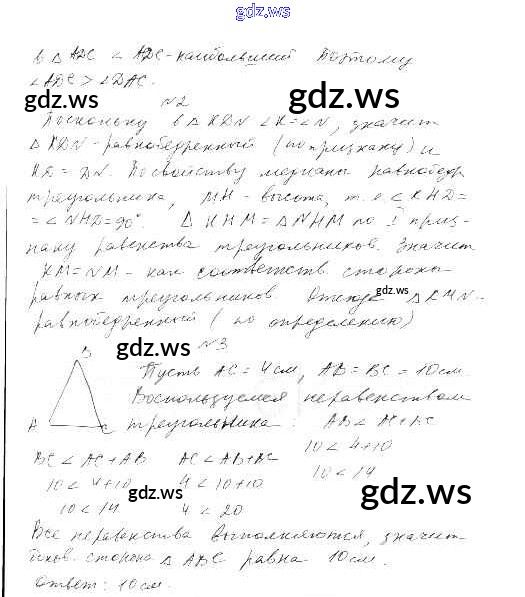 gdz.ws
в △ ADC ∠ ADC - наибольший Поэтому
∠ADC > ∠DAC.
gdz.ws gdz.ws
№2
Поскольку в △KDN ∠K=∠N, значит
△ KDN - равнобедренный (по признаку) и
KD = DN. По свойству медианы равнобедр
треугольника, MH - высота, т.е ∠KHD=
= ∠NHD=90°. △ KHM = △NHM по I приз-
наку равенства треугольников. Значит
KM=NM - как соответств. стороны
gdz.ws
равных треугольников Отсюда △KMN -
равнобедренный (по определению)
gdz.ws
№3
B
Пусть AC = 4см, AB = BC = 10см.
Воспользуемся неравенством
A C треугольника: AB < AC+BC
10 < 4+10
10 < 14
BC < AC+AB AC < AB+BC
10 < 4+10 4 < 10+10
10 < 14 4 < 20
gdz.ws gdz.ws
Все неравенства выполняются, значит
боков. сторона △ ABC равна 10см.
Ответ: 10см.